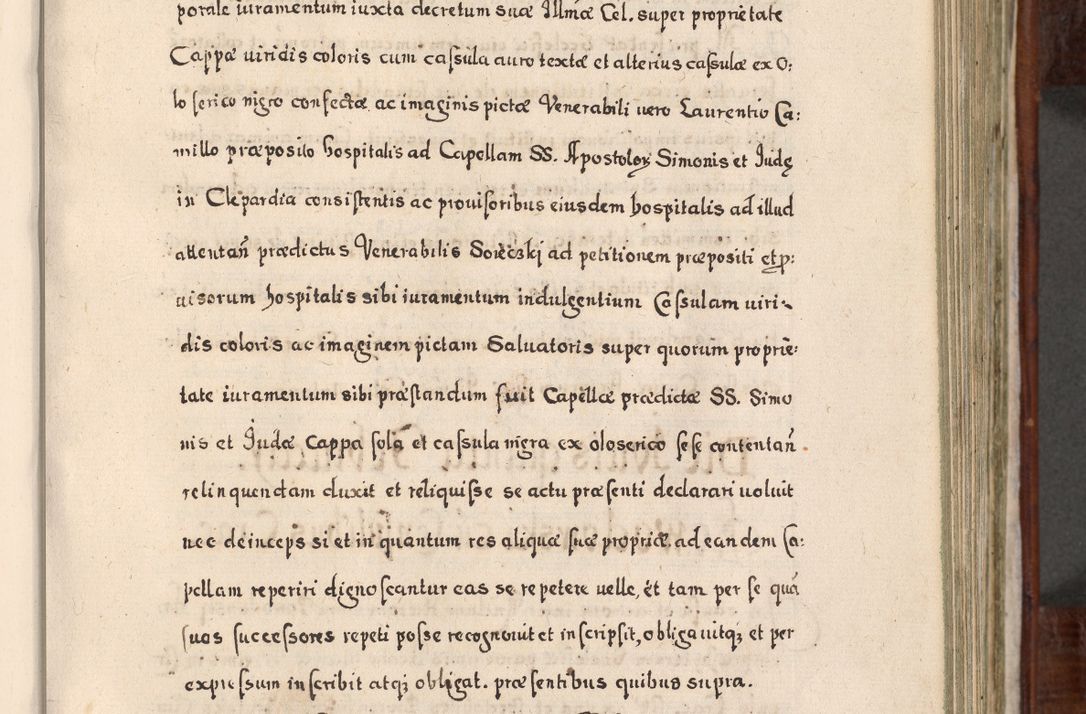 porale iuramentum iuxta decretum suæ Illmæ Cel. super proprietate
Cappæ uiridis coloris cum caſsula auro textæ et alterius caſsulæ ex O:
lo ſerico nigro confectæ ac imaginis pictæ Venerabili uero Laurentio Ca:
millo præposito hospitalis ad Capellam SS. Apostoloꝝ Simonis et Iudę
in Clepardia consiſtentis ac prouiſoribus eiusdem hospitalis ad illud
attentañ prædictus Venerabilis Soŕeczkj ad petitionem præpositi et ꝓ:
uisorum hospitalis sibi iuramentum indulgentium Caſsulam uiri-
dis coloris ac imaginem pictam Saluatoris super quorum proprie:
tate iuramentum sibi præſtandum fuit Capellæ prædictæ SS. Simo
nis et Iudæ Cappa ſola et caſsula nigra ex oloserico seſe contentañ
relinquendam duxit et reliquiſse se actu præsenti declarari uoluit
nec deinceps si et in quantum res aliquæ ſuæ propriæ ad eandem Ca:
pellam reperiri dignoſcantur eas se repetere uelle, et tam per ſe quā
ſuos ſucceſsores repeti poſse recognouit et inſcripſit, obligauitqꝫ et per
expreſsum inſcribit atqꝫ obligat. præſentibus quibus supra.